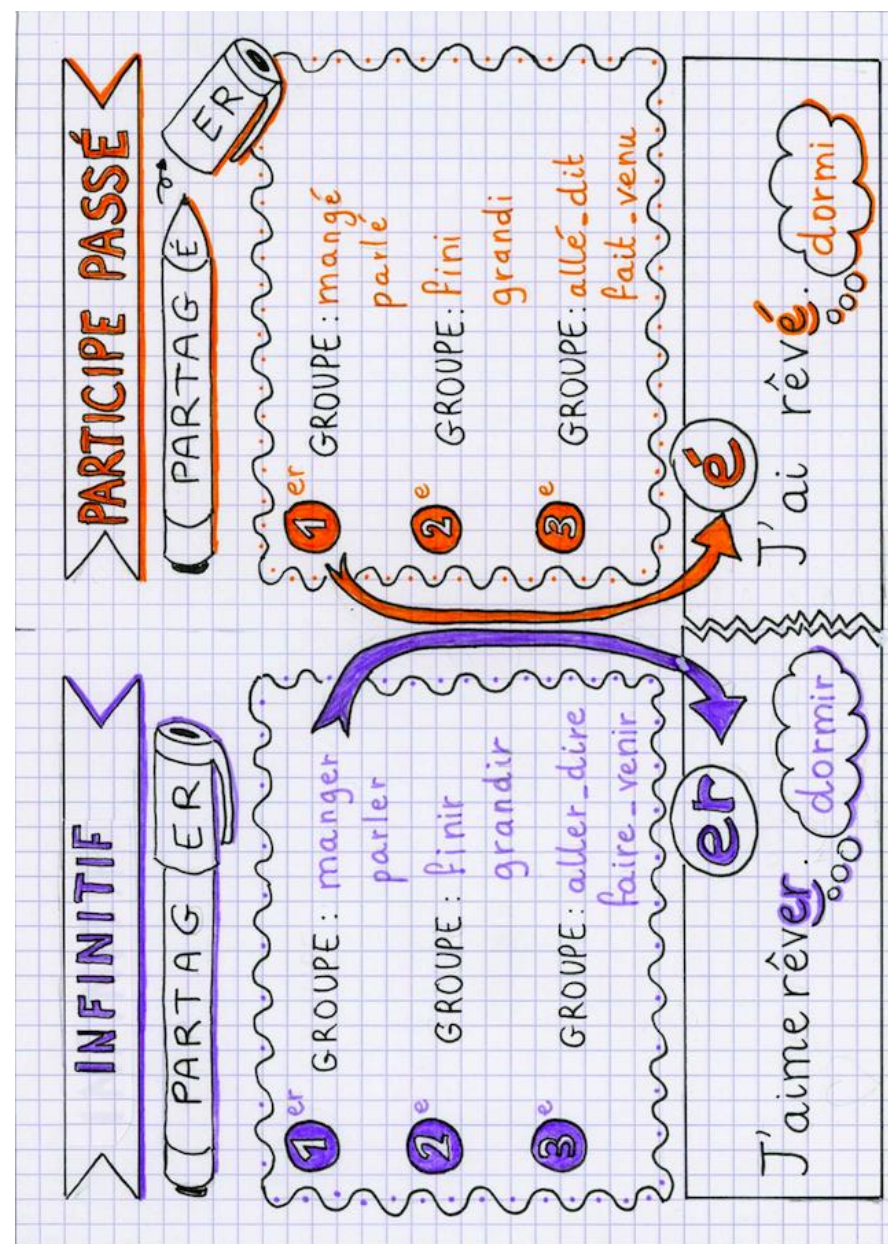 INFINITIF
PARTAG ER
1er GROUPE : manger
parler
2e GROUPE : finir
grandir
3e GROUPE : aller_dire
faire_venir
er
J'aime rêver.
dormir
PARTICIPE PASSÉ
PARTAG É
ER
1er GROUPE : mangé
parlé
2e GROUPE : fini
grandi
3e GROUPE : allé_dit
fait_venu
é
J'ai rêvé.
dormi